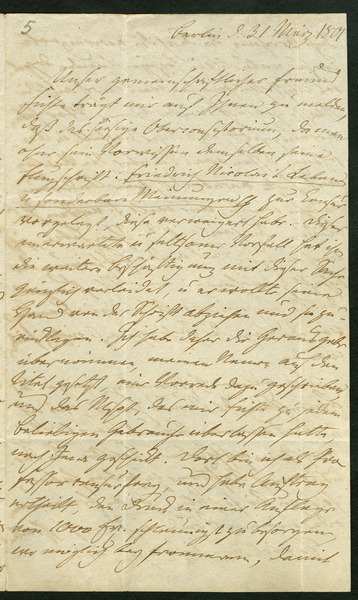 5
Berlin d. 31 März 1801
Unser gemeinschaftlicher Freund
Fichte trägt mir auf Ihnen zu melden,
daß das hiesige Oberconsistorium, da man
ohne sein Vorwissen demselben seine
Flugschrift: Friedrich Nicolai's Leben
u. sonderbare Meinungen zur Censur
vorgelegt, diese verweigert habe. Dieser
unerwartete u. seltsame Vorfall hat ihm
die weitere Beschäftigung mit dieser Sache
gänzlich verleidet, u. er wollte seine
Hand von der Schrift abziehen und sie
Ich habe daher die Herausgabe
übernommen, meinen Namen auf den
Titel gesetzt, eine Vorrede dazu geschrieben
und das Mspt, das mir Fichte zu jedem
beliebigen Gebrauche überlassen hatte,
nach Jena geschickt.
und habe Auftrag
ertheilt, den Druck in einer Auflage
von 1000 Ex. schleunigst zu besorgen,
wo möglich bey Frommann, damit